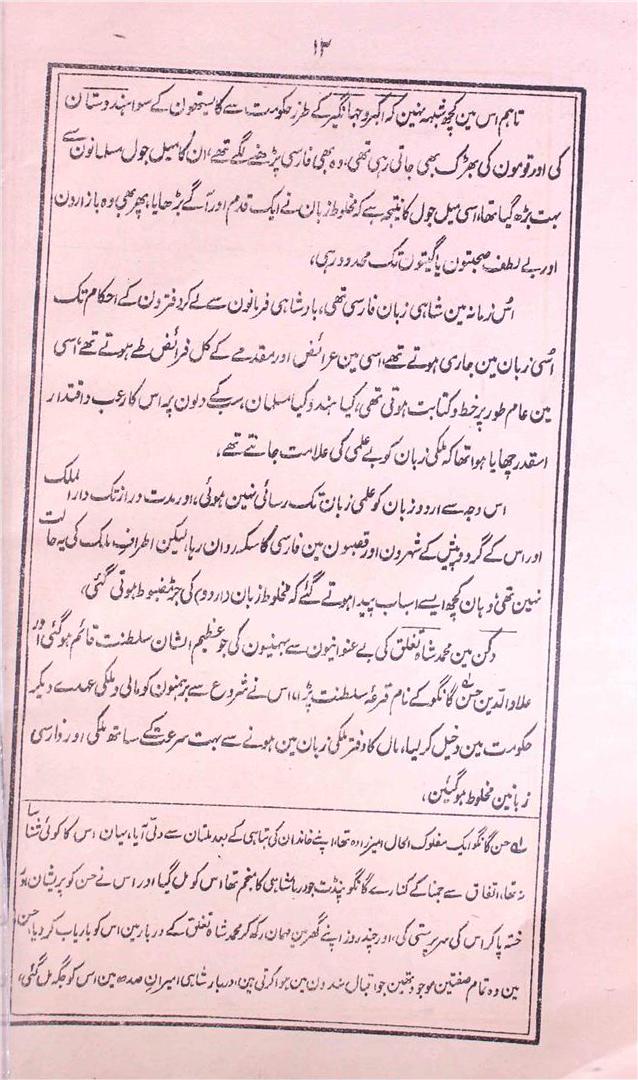 ۱۳
تاہم اس مین کچھ شبہہ نہین کہ اکبر و جہانگیر کے طرز حکومت سے کایستھون کے سوا ہندوستان
کی اور قومون کی بھڑک بھی جاتی رہی تھی، وہ بھی فارسی پڑھنے لگے تھے، ان کا میل جول مسلمانون سے
بہت بڑھ گیا تھا، اسی میل جول کا نتیجہ ہے کہ مخلوط زبان نے ایک قدم اور آگے بڑھایا، پھر بھی وہ بازارون
اور بے لطف صحبتون یا گیتون تک محدود رہی،
اُس زمانہ مین شاہی زبان فارسی تھی، بادشاہی فرمانون سے لے کر دفترون کے احکام تک
اُسی زبان مین جاری ہوتے تھے، اسی مین عرائض اور مقدمے کے کل فرائض طے ہوتے تھے، اسی
مین عام طور پر خط و کتابت ہوتی تھی، کیا ہندو کیا مسلمان، سب کے دلون پر اس کا رعب و اقتدار
اسقدر چھایا ہوا تھا کہ ملکی زبان کو بے علمی کی علامت جانتے تھے،
اس وجہ سے اردو زبان کو علمی زبان تک رسائی نہین ہوئی، اور مدت دراز تک دار الملک
اور اس کے گرد و پیش کے شہرون اور قصبون مین فارسی کا سکہ روان رہا، لیکن اطراف ملک کی یہ حالت
نہین تھی، وہان کچھ ایسے اسباب پیدا ہوتے گئے کہ مخلوط زبان (اردو) کی جڑ مضبوط ہوتی گئی،
دکن مین محمد شاہ تغلق کی بے عنوانیون سے بہمنیون کی جو عظیم الشان سلطنت قائم ہوگئی اور
علاؤالدین حسن گانگو لہ کے نام قرعۂ سلطنت پڑا، اس نے شروع سے برہمنون کو مالی و ملکی عہدے دیکر
حکومت مین دخیل کرلیا، مال کا دفتر ملکی زبان مین ہونے سے بہت سرعت کے ساتھ ملکی اور فارسی
زبانین مخلوط ہوگئین،
لہ حسن گانگو ایک مفلوک الحال امیرزادہ تھا، اپنے خاندان کی تباہی کے بعد ملتان سے دلّی آیا، یہان اس کا کوئی شناسا
نہ تھا، اتفاق سے جمنا کے کنارے گانگو پنڈت جو دربار شاہی کا منجم تھا اس کو مل گیا اور اس نے حسن کو پریشان اور
خستہ پا کر اس کی سرپرستی کی، اور چند روز اپنے گھر مین مہمان رکھ کر محمد شاہ تغلق کے دربار مین اس کو باریاب کر دیا، حسن
مین وہ تمام صفتین موجود تھین جو اقبال مندون مین ہوا کرتی ہین، دربار شاہی امیران صدہ مین اس کو جگہ مل گئی،